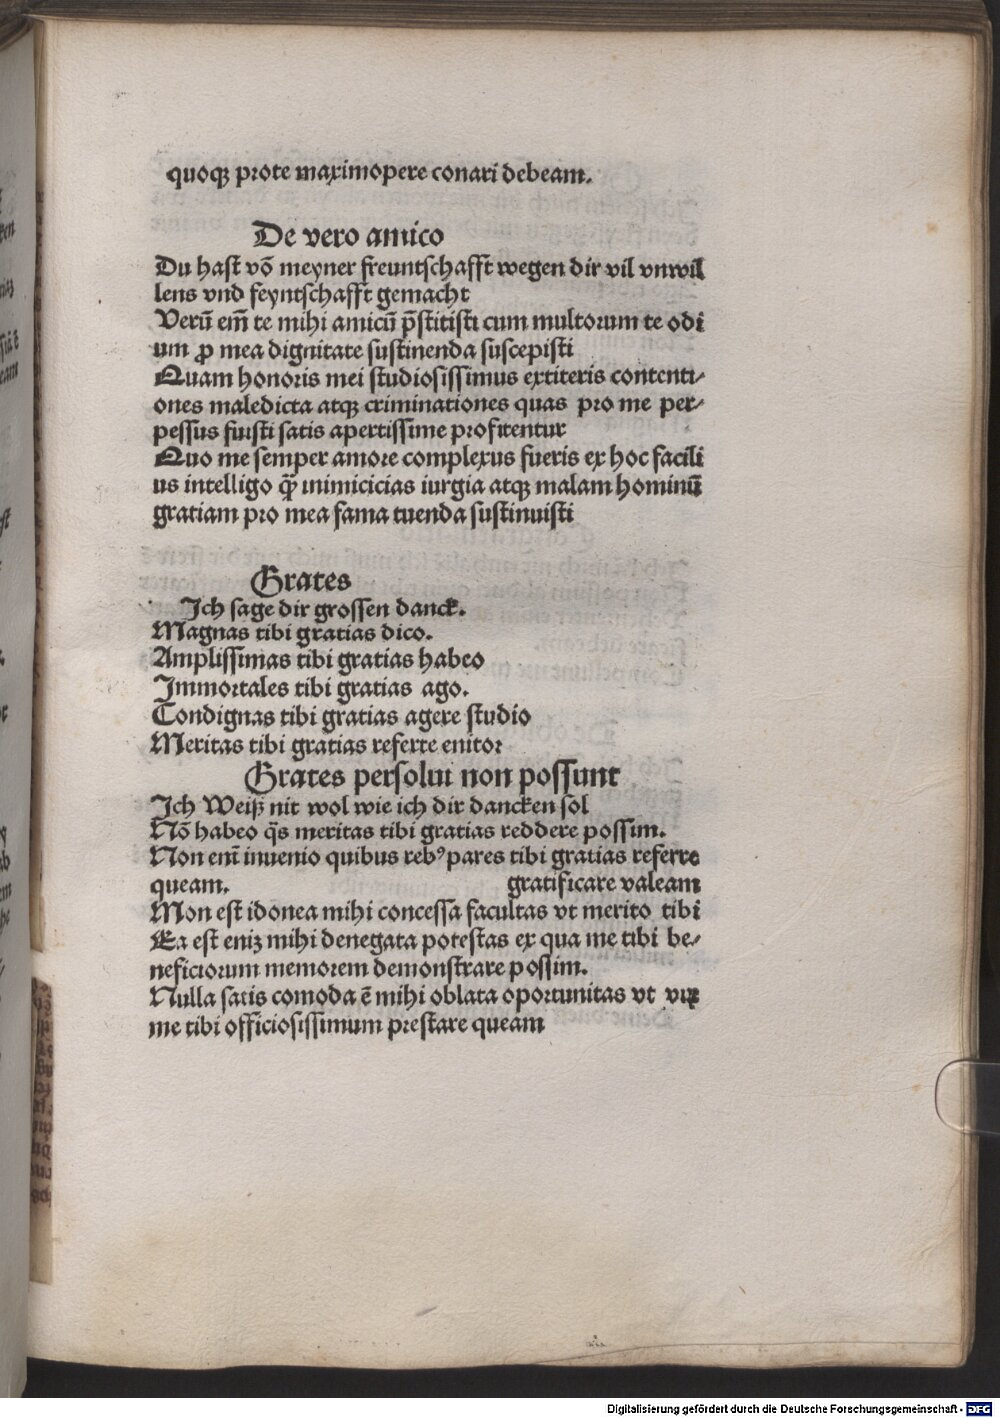 quoqꝫ prote maximopere conari debeam.
De vero amico
Du hast võ meyner freuntschafft wegen dir vil vnwil
lens vnd feyntschafft gemacht
Verũ em̃ te mihi amicũ p̃stitisti cum multorum te odi
um ꝓ mea dignitate sustinenda suscepisti
Quam honoris mei studiosissimus extiteris contenti⸗
ones maledicta atqꝫ criminationes quas pro me per⸗
pessus fuisti satis apertissime profitentur
Quo me semper amore complexus fueris ex hoc facili
us intelligo qp̃ inimicicias iurgia atqꝫ malam hominũ
gratiam pro mea fama tuenda sustinuisti
Grates
Ich sage dir grossen danck.
Magnas tibi gratias dico.
Amplissimas tibi gratias habeo
Immortales tibi gratias ago.
Condignas tibi gratias agere studio
Meritas tibi gratias referre enitor
Grates persolui non possunt
Ich Weiß nit wol wie ich dir dancken sol
Nõ habeo q̃s meritas tibi gratias reddere possim.
Non em̃ inuenio quibus rebꝰ pares tibi gratias referre
queam. gratificare valeam
Mon est idonea mihi concessa facultas vt merito tibi
Ea est eniꝫ mihi denegata potestas ex qua me tibi be⸗
neficiorum memorem demonstrare possim.
Nulla satis comoda ẽ mihi oblata oportunitas vt
me tibi officiosissimum prestare queam
Digitalisierung gefördert durch die Deutsche Forschungsgemeinschaft - DFG